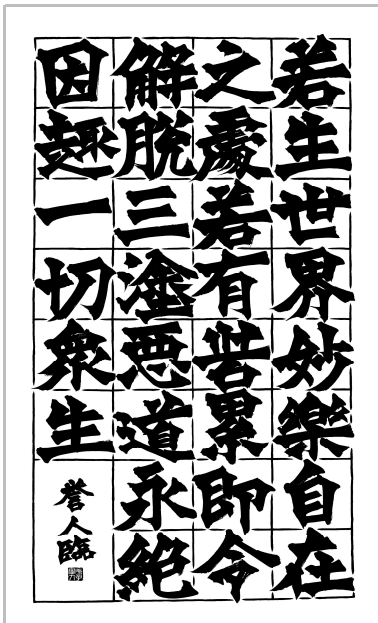 若生世界妙樂自在
之處若有苦累即令
解脫三塗悪道永絶
因趣一切衆生
誉人臨